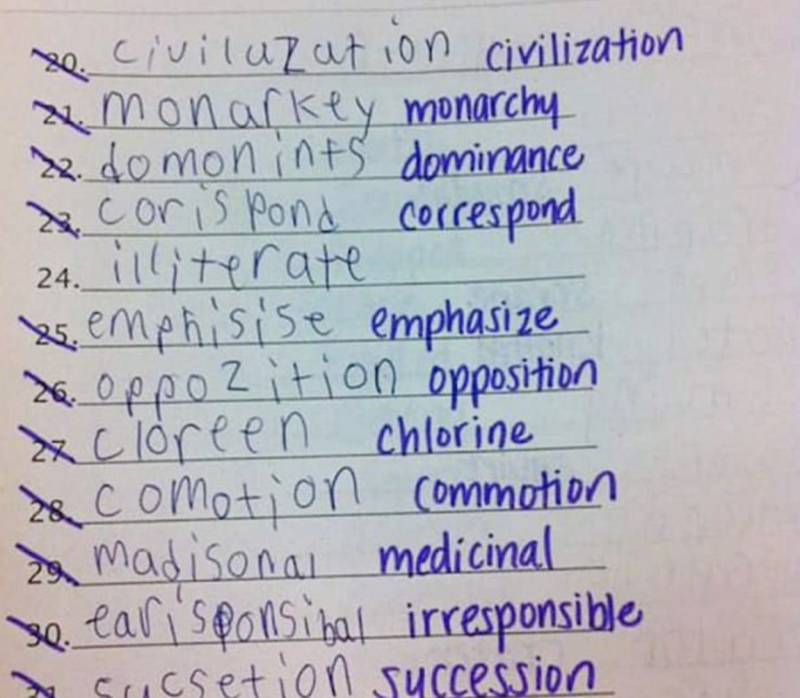 20. civilazation civilization
21. monarkey monarchy
22. domonints dominance
23. corispond correspond
24. illiterate
25. emphisise emphasize
26. oppozition opposition
27. cloreen chlorine
28. comotion commotion
29. madisonal medicinal
30. earisponsibal irresponsible
31. sucsetion succession